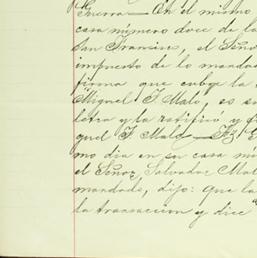 Guerra — En el mismo
casa número doce de la
San Francisco, el Señor
impuesto de lo mandad
firma que cubre la
Miguel F Malo, es su
letra y la ratifico y fi
guel F Malo — 
mo dia en su casa nú
el Señor Salvador Mal
mandado, dijo: que la
la transaccion y dice "